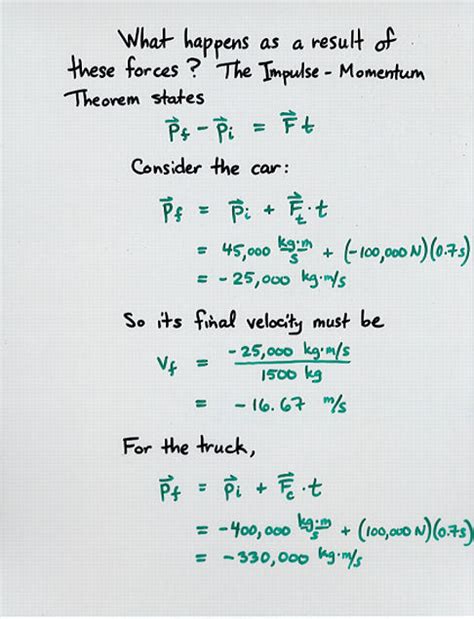 What happens as a result of
these forces? The Impulse - Momentum
Theorem states
p⃗f - p⃗i = F⃗t
Consider the car:
p⃗f = p⃗i + F⃗t·t
= 45,000 kg·m/s + (-100,000 N)(0.7s)
= -25,000 kg·m/s
So its final velocity must be
vf = -25,000 kg·m/s / 1500 kg
= -16.67 m/s
For the truck,
p⃗f = p⃗i + F⃗c·t
= -400,000 kg·m/s + (100,000 N)(0.7s)
= -330,000 kg·m/s